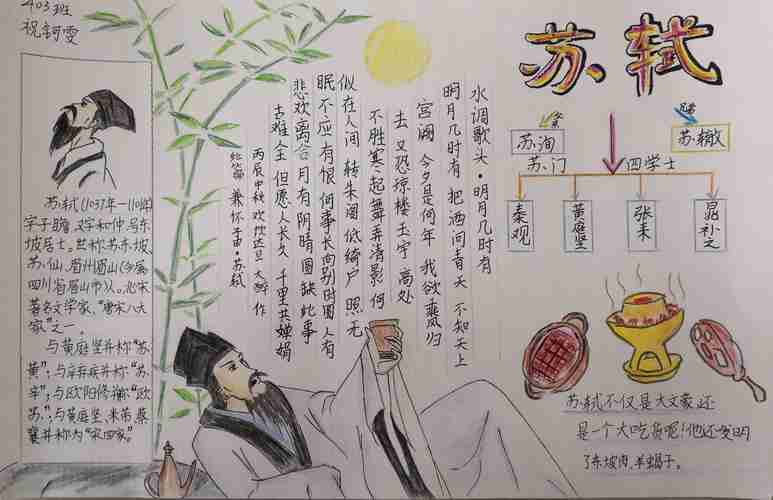 403班
祝钶雯
苏轼
苏轼(1037年-1101年)
字子瞻,又字和仲,号东
坡居士,世称苏东坡、
苏仙,眉州眉山(今属
四川省眉山市)人。北宋
著名文学家、“唐宋八大
家”之一。
与黄庭坚并称“苏
黄”;与辛弃疾并称“苏
辛”;与欧阳修并称“欧
苏”;与黄庭坚、米芾、蔡
襄并称为“宋四家”。
水调歌头·明月几时有
明月几时有 把酒问青天 不知天上
宫阙 今夕是何年 我欲乘风归
去 又恐琼楼玉宇 高处
不胜寒 起舞弄清影 何
似在人间 转朱阁 低绮户 照无
眠 不应有恨 何事长向别时圆 人有
悲欢离合 月有阴晴圆缺 此事
古难全 但愿人长久 千里共婵娟
丙辰中秋 欢饮达旦 大醉 作
此篇 兼怀子由·苏轼
父亲
苏·洵
苏·辙
苏门 四学士
秦观
黄庭坚
张耒
晁补之
苏·轼不仅是大文豪还
是一个大吃货呢!他还发明
了东坡肉、羊蝎子。